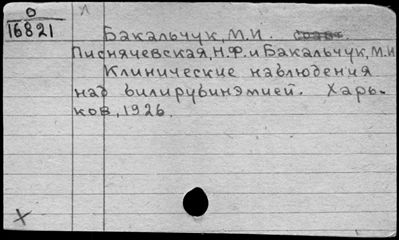 О
16821
Бакальчук, М.И.
Писнячевская, Н.Ф. и Бакальчук, М.И
Клинические наблюдения
над вилирувинэмией. Харь-
ков, 1926.
X